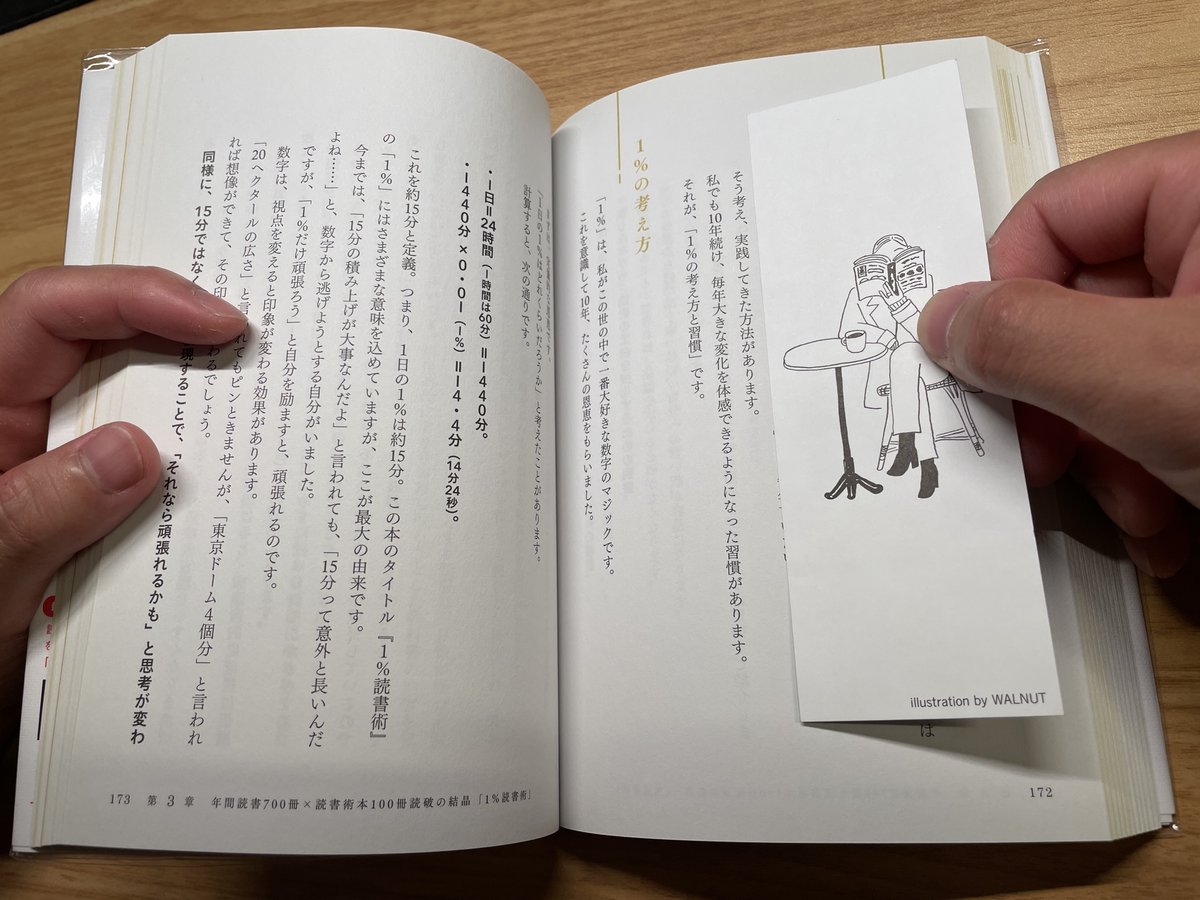 そう考え、実践してきた方法があります。
私でも10年続け、毎年大きな変化を体感できるようになった習慣があります。
それが、「1%の考え方と習慣」です。
1%の考え方
「1%」は、私がこの世の中で一番大好きな数字のマジックです。
これを意識して10年、たくさんの恩恵をもらいました。
「1日の1%はどれくらいだろうか」と考えたことがあります。
計算すると、次の通りです。
・1日＝24時間（1時間は60分）＝1440分。
・1440分×0・01（1%）＝14・4分（14分24秒）。
これを約15分と定義。つまり、1日の1%は約15分。この本のタイトル『1%読書術』
の「1%」にはさまざまな意味を込めていますが、ここが最大の由来です。
今までは、「15分の積み上げが大事なんだよ」と言われても、「15分って意外と長いんだ
よね……」と、数字から逃げようとする自分がいました。
ですが、「1%だけ頑張ろう」と自分を励ますと、頑張れるのです。
数字は、視点を変えると印象が変わる効果があります。
「20ヘクタールの広さ」と言われてもピンときませんが、「東京ドーム4個分」と言われ
れば想像ができて、その印わるでしょう。
同様に、15分ではなく現することで、「それなら頑張れるかも」と思考が変わ
は
172
173 第3章 年間読書700冊×読書術本100冊読破の結晶「1%読書術」
illustration by WALNUT